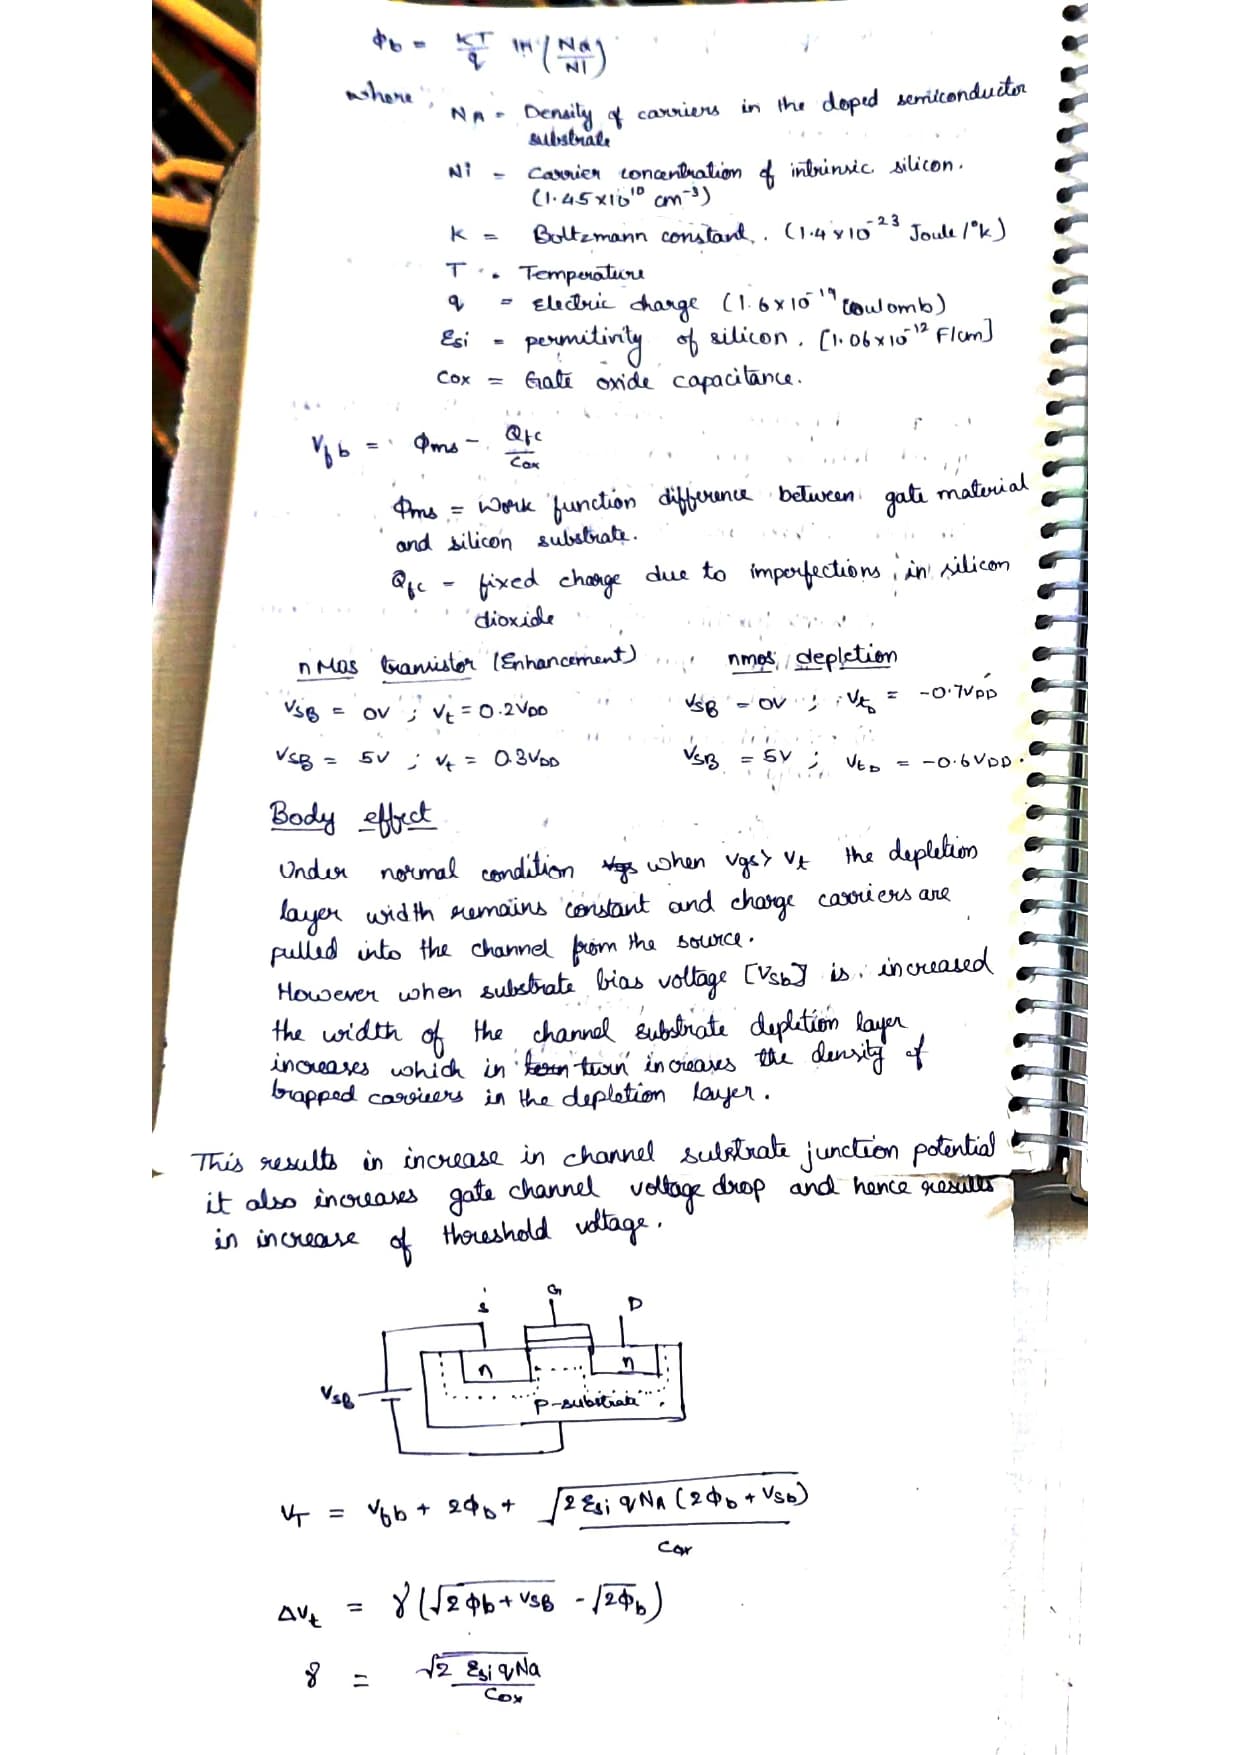 Φb = KT/q ln (Na/Ni)
where,
NA = Density of carriers in the doped semiconductor
substrate
Ni = Carrier concentration of intrinsic silicon.
(1.45×10¹⁰ cm⁻³)
K = Boltzmann constant. (1.4×10⁻²³ Joule/°K)
T = Temperature
q = Electric charge (1.6×10⁻¹⁹ coulomb)
Esi = permitivity of silicon. [1.06×10⁻¹² F/cm]
Cox = Gate oxide capacitance.
Vfb = Φms - Qfc/Cox
Φms = Work function difference between gate material
and silicon substrate.
Qfc = fixed charge due to imperfections in silicon
dioxide
nMos transistor (Enhancement) nmos depletion
VSB = 0V ; Vt = 0.2VDD VSB = 0V ; VtD = -0.7VDD
VSB = 5V ; Vt = 0.3VDD VSB = 5V ; VtD = -0.6VDD.
Body effect
Under normal condition when Vgs > Vt the depletion
layer width remains constant and charge carriers are
pulled into the channel from the source.
However when substrate bias voltage [Vsb] is increased
the width of the channel substrate depletion layer
increases which in turn increases the density of
trapped carriers in the depletion layer.
This results in increase in channel substrate junction potential
it also increases gate channel voltage drop and hence results
in increase of threshold voltage.
S G D
n n
VSB
p-substrate
VT = Vfb + 2Φb + √2 Esi q NA (2Φb + Vsb)/Cox
ΔVt = γ(√2Φb + VSB - √2Φb)
γ = √2 Esi q Na/Cox